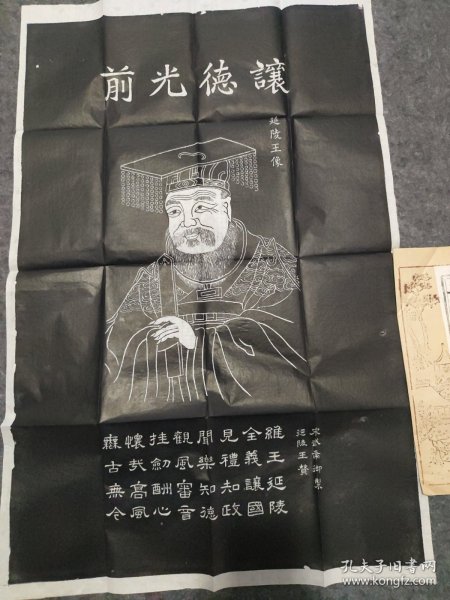 讓德光前
延陵王像
宋武帝御製
延陵王贊
維王延陵
全義讓國
見禮知政
聞樂知德
觀風審音
挂劍酬心
懷哉高風
古無今
孔夫子旧书网
www.kongfz.com